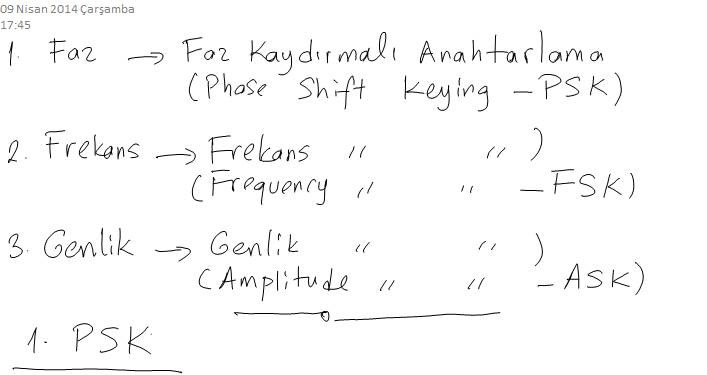 09 Nisan 2014 Çarşamba
17:45
1. Faz → Faz Kaydırmalı Anahtarlama
(Phase Shift Keying - PSK)
2. Frekans → Frekans " " )
(Frequency " " - FSK)
3. Genlik → Genlik " " )
(Amplitude " " - ASK)
1. PSK